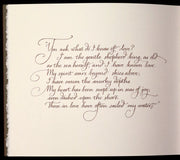 You ask what do I know of love?
I am the gentle shepherd king, as old
as the sea herself, and I have known love.
My spirit soars beyond skies above,
I have risen the nearby depths
My heart has been swept up in seas of joy,
dashed upon the shore.
Those in love have often sailed my waters